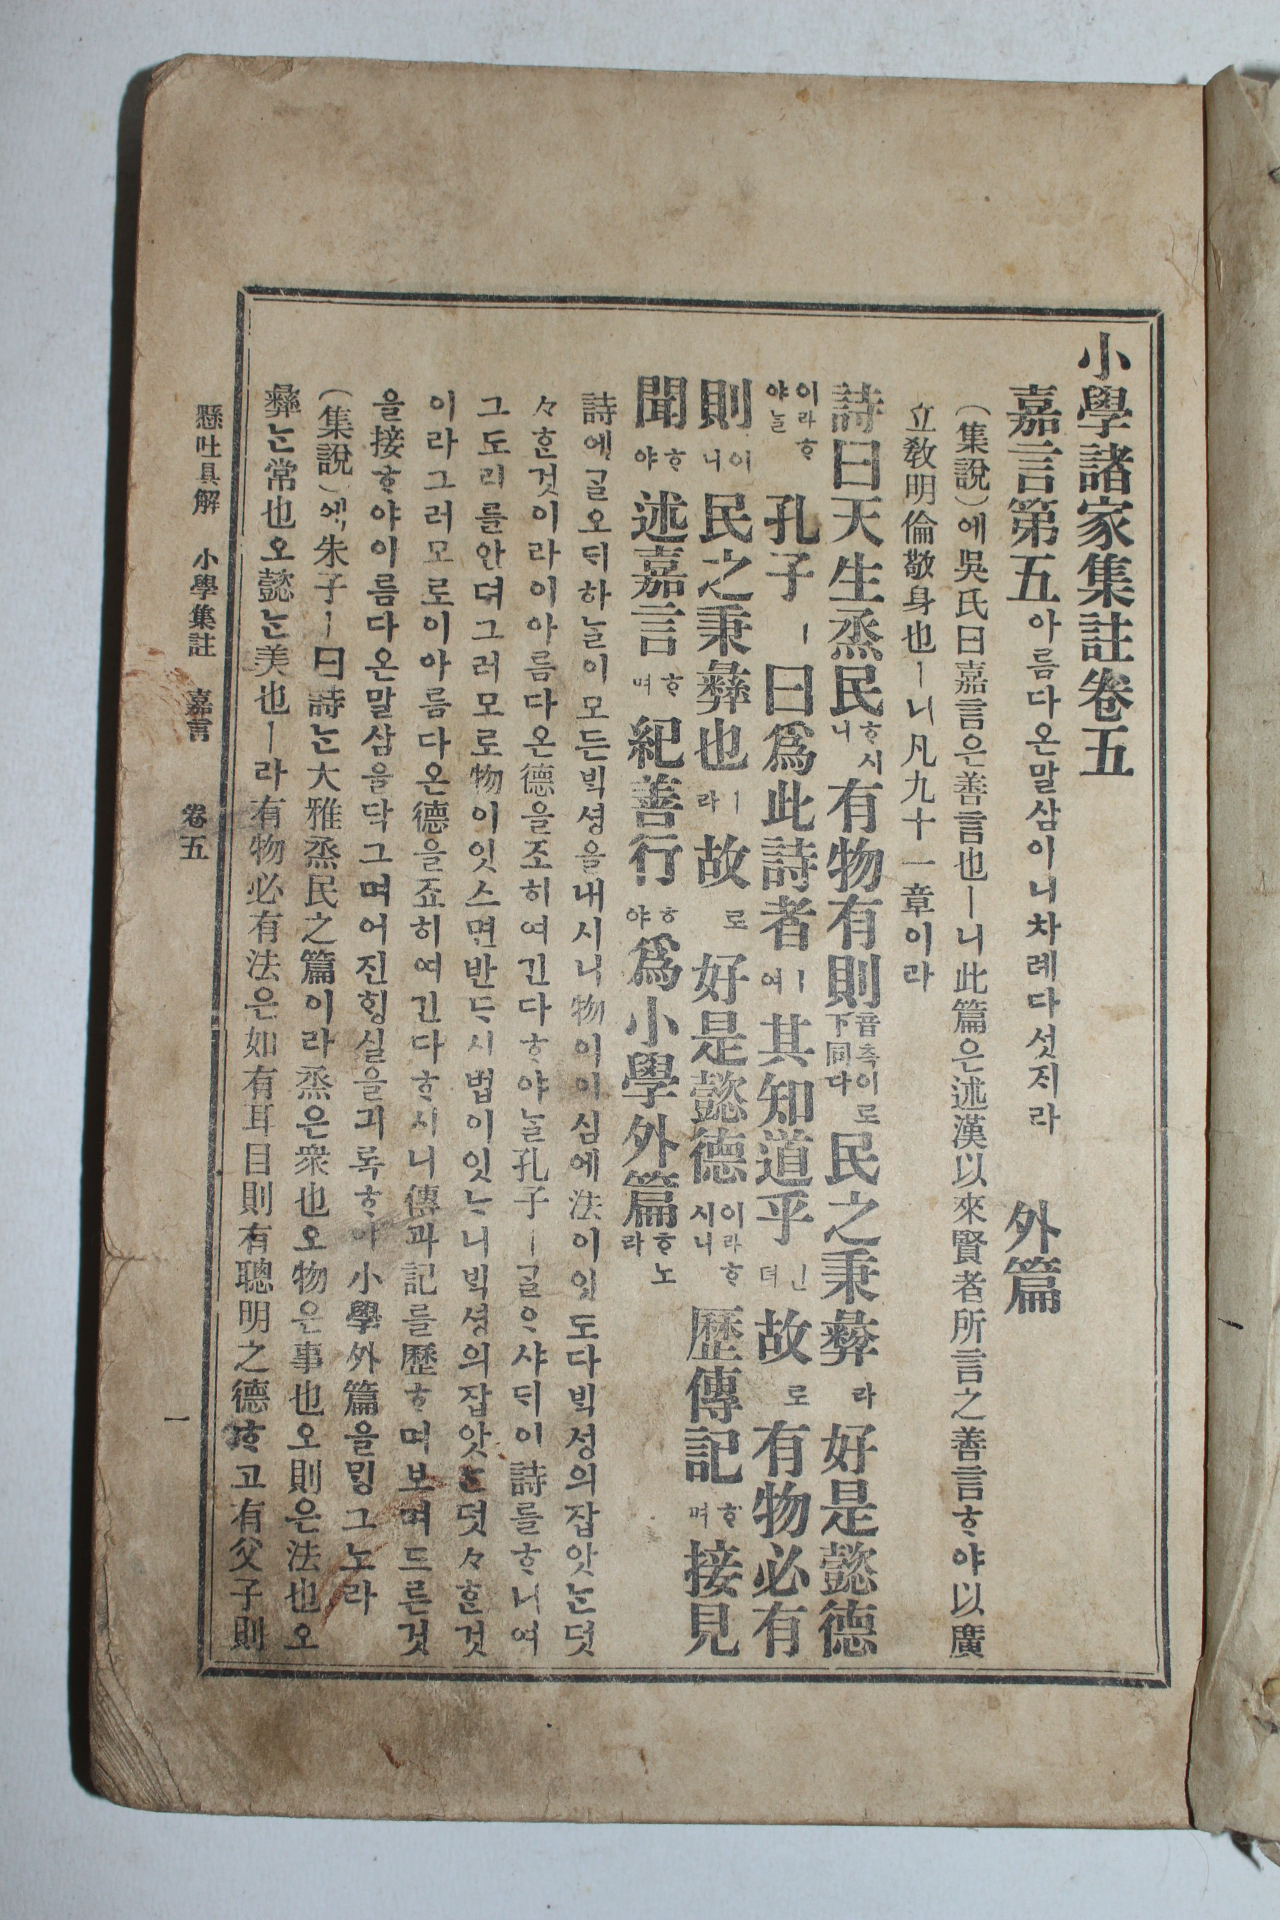 小學諸家集註卷五
嘉言第五 아름다온말삼이니차례다섯지라 外篇
(集說)에吳氏曰嘉言은善言也ㅣ니此篇은述漢以來賢者所言之善言ᄒᆞ야以廣
立敎明倫敬身也ㅣ니凡九十一章이라
詩曰天生烝民ᄒᆞ시니有物有則音측이로下同다民之秉彝라好是懿德
이라ᄒᆞ야ᄂᆞᆯ孔子ㅣ曰爲此詩者ㅣ여其知道乎닌뎌故로有物必有
則이니民之秉彝也ㅣ라故로好是懿德이라ᄒᆞ시니歷傳記ᄒᆞ며接見
聞ᄒᆞ야述嘉言ᄒᆞ며紀善行ᄒᆞ야爲小學外篇ᄒᆞ노라
詩에ᄀᆞᆯ오ᄃᆡ하ᄂᆞᆯ이모든ᄇᆡᆨ셩을내시니物이이심에法이잇도다ᄇᆡᆨ셩의잡앗ᄂᆞᆫ덧
々ᄒᆞᆫ것이라이아름다온德을죠히여긴다ᄒᆞ야ᄂᆞᆯ孔子ㅣᄀᆞᆯᄋᆞ샤ᄃᆡ이詩를ᄒᆞ니여
그도리를안뎌그러모로物이잇스면반ᄃᆞ시법이잇ᄂᆞ니ᄇᆡᆨ셩의잡앗ᄂᆞᆫ덧々ᄒᆞᆫ것
이라그러모로이아름다온德을죠히여긴다ᄒᆞ시니傳과記를歷ᄒᆞ며보며드른것
을接ᄒᆞ야이름다온말삼을닥그며어진ᄒᆡᆼ실을긔록ᄒᆞ야小學外篇을ᄆᆡᆼ그노라
(集說)에朱子ㅣ曰詩ᄂᆞᆫ大雅烝民之篇이라烝은衆也오物은事也오則은法也오
彝ᄂᆞᆫ常也오懿ᄂᆞᆫ美也ㅣ라有物必有法은如有耳目則有聰明之德ᄒᆞ고有父子則
懸吐具解 小學集註 嘉言 卷五 一